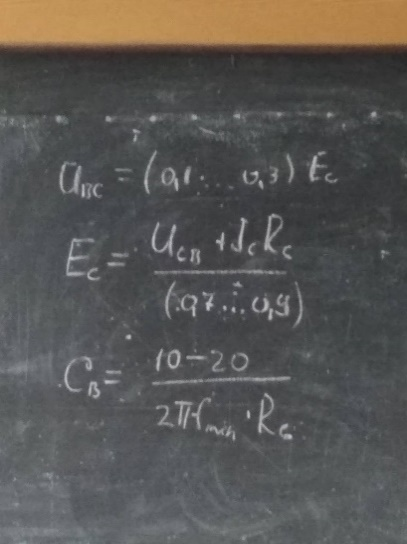 U_BC = (0,1 ... 0,3) E_c
E_c = (U_CB + J_c R_c) / (0,7 ... 0,9)
C_B = (10 ÷ 20) / (2π f_min · R_G)